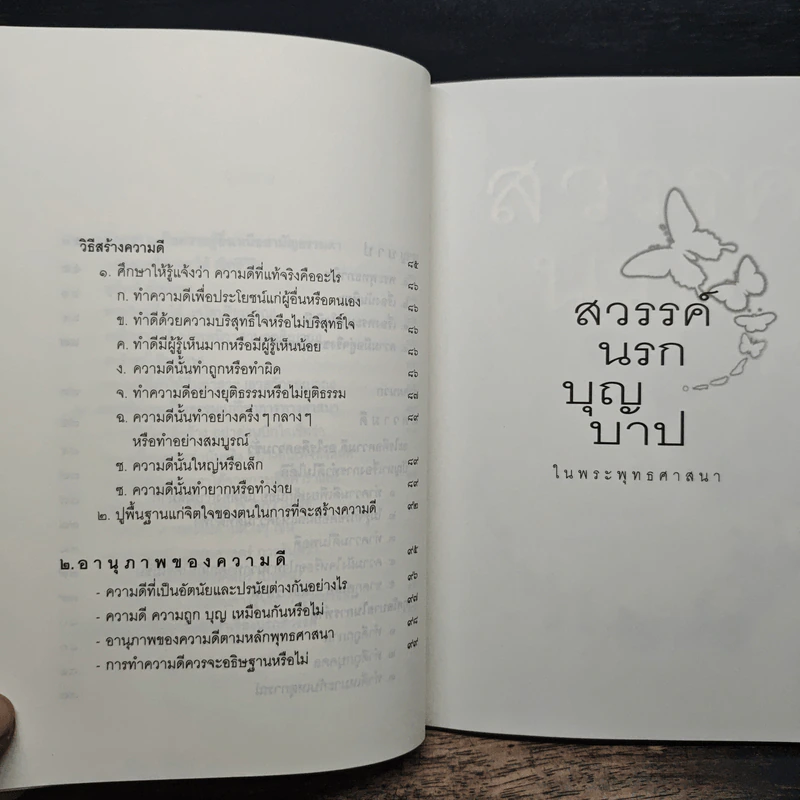 วิธีสร้างความดี ๘๕
๑. ศึกษาให้รู้แจ้งว่า ความดีที่แท้จริงคืออะไร ๘๖
ก. ทำความดีเพื่อประโยชน์แก่ผู้อื่นหรือตนเอง ๘๖
ข. ทำดีด้วยความบริสุทธิ์ใจหรือไม่บริสุทธิ์ใจ ๘๖
ค. ทำดีมีผู้รู้เห็นมากหรือมีผู้รู้เห็นน้อย ๘๖
ง. ความดีนั้นทำถูกหรือทำผิด ๘๖
จ. ทำความดีอย่างยุติธรรมหรือไม่ยุติธรรม ๘๗
ฉ. ความดีนั้นทำอย่างครึ่งๆ กลางๆ ๘๙
หรือทำอย่างสมบูรณ์
ช. ความดีนั้นใหญ่หรือเล็ก ๘๙
ซ. ความดีนั้นทำยากหรือทำง่าย ๘๙
๒. ปูพื้นฐานแก่จิตใจของตนในการที่จะสร้างความดี ๙๒
๒. อานุภาพของความดี ๙๕
- ความดีที่เป็นอัตนัยและปรนัยต่างกันอย่างไร ๙๖
- ความดี ความถูก บุญ เหมือนกันหรือไม่ ๙๗
- อานุภาพของความดีตามหลักพุทธศาสนา ๙๘
- การทำความดีควรจะอธิษฐานหรือไม่ ๙๙
สวรรค์
นรก
บุญ
บาป
ในพระพุทธศาสนา